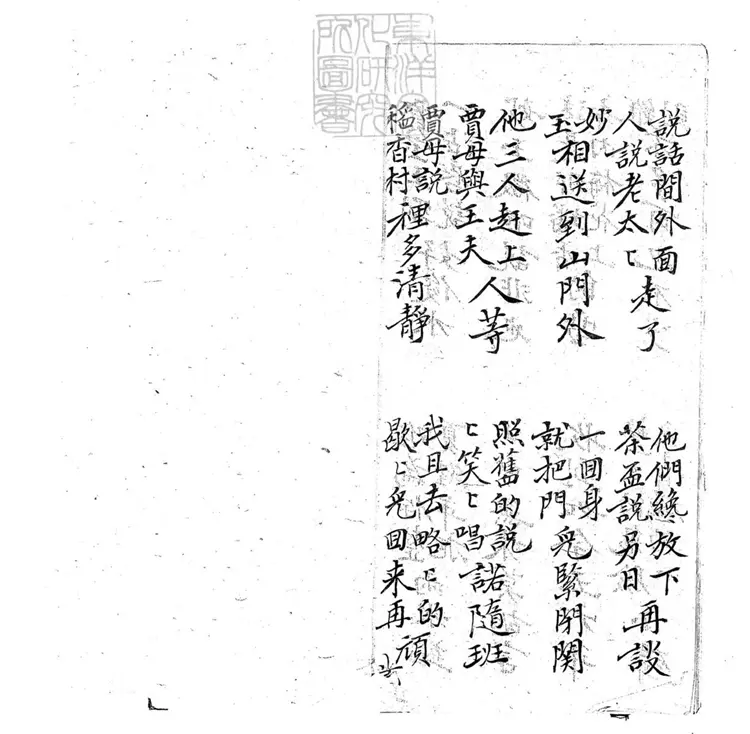 説話間外面人説老太〻走了
他們纔放下茶盃説另日再談
妙玉相送到山門外
一回身就把門兒緊閉関
他三人赶上賈母與王夫人等
照舊的説〻笑〻唱諾隨班
賈母説稲香村裡多清靜
我且去略〻的歇〻兒回来再頑
東洋文化研究所圖書